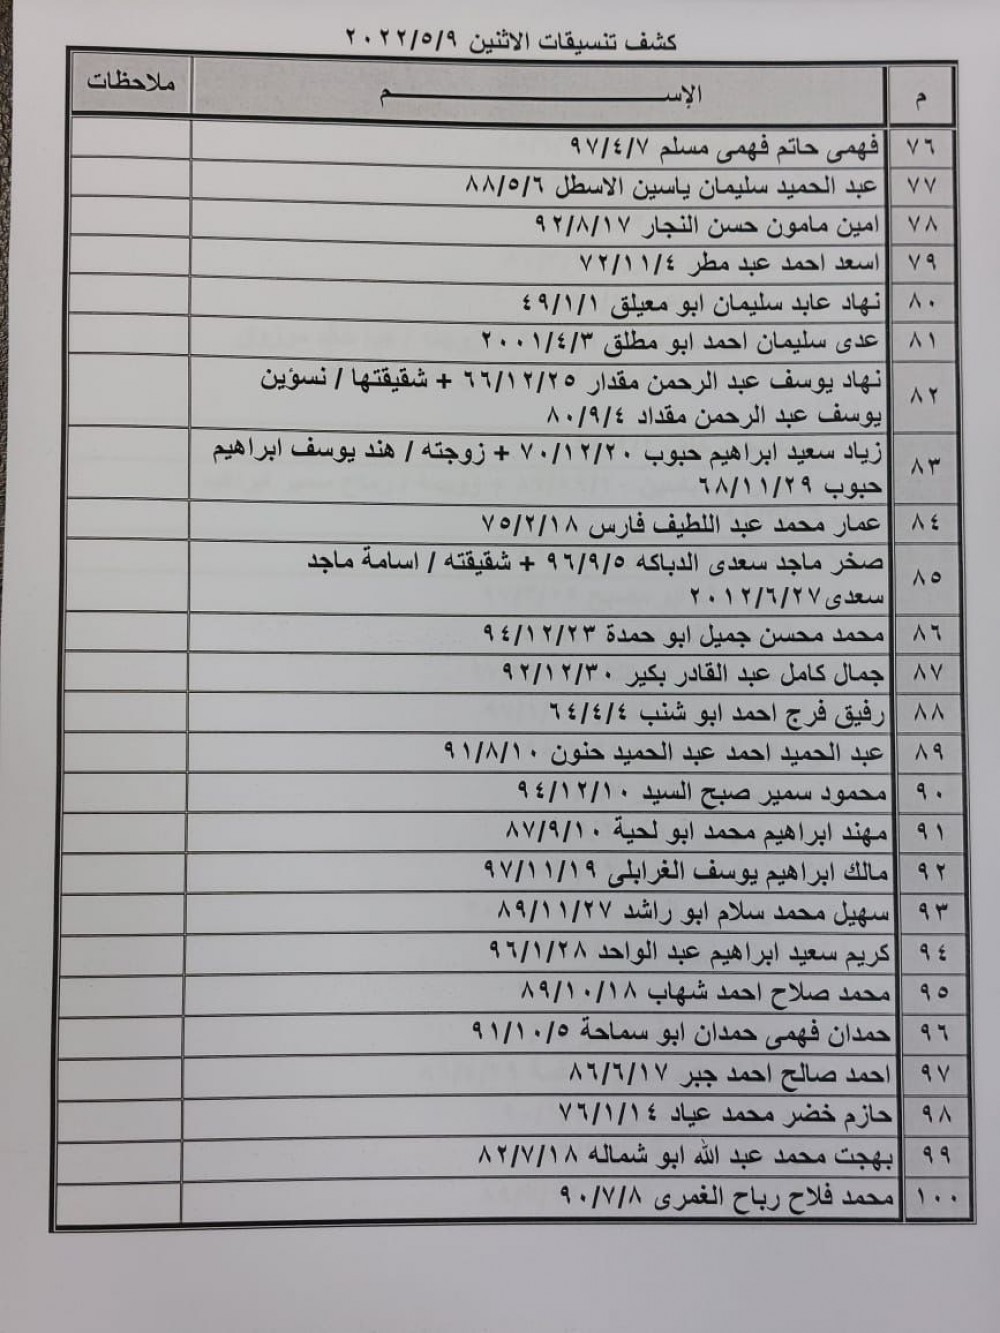 كشف تنسيقات الاثنين ٢٠٢٢/٥/٩
م الإســـــــــــــم ملاحظات
٧٦ فهمى حاتم فهمى مسلم ٩٧/٤/٧
٧٧ عبد الحميد سليمان ياسين الاسطل ٨٨/٥/٦
٧٨ امين مامون حسن النجار ٩٢/٨/١٧
٧٩ اسعد احمد عبد مطر ٧٢/١١/٤
٨٠ نهاد عابد سليمان ابو معيلق ٤٩/١/١
٨١ عدى سليمان احمد ابو مطلق ٢٠٠١/٤/٣
٨٢ نهاد يوسف عبد الرحمن مقدار ٦٦/١٢/٢٥ + شقيقتها / نسؤين
يوسف عبد الرحمن مقداد ٨٠/٩/٤
٨٣ زياد سعيد ابراهيم حبوب ٧٠/١٢/٢٠ + زوجته / هند يوسف ابراهيم
حبوب ٦٨/١١/٢٩
٨٤ عمار محمد عبد اللطيف فارس ٧٥/٢/١٨
٨٥ صخر ماجد سعدى الدباكه ٩٦/٩/٥ + شقيقته / اسامة ماجد
سعدى٢٠١٢/٦/٢٧
٨٦ محمد محسن جميل ابو حمدة ٩٤/١٢/٢٣
٨٧ جمال كامل عبد القادر بكير ٩٢/١٢/٣٠
٨٨ رفيق فرج احمد ابو شنب ٦٤/٤/٤
٨٩ عبد الحميد احمد عبد الحميد حنون ٩١/٨/١٠
٩٠ محمود سمير صبح السيد ٩٤/١٢/١٠
٩١ مهند ابراهيم محمد ابو لحية ٨٧/٩/١٠
٩٢ مالك ابراهيم يوسف الغرابلى ٩٧/١١/١٩
٩٣ سهيل محمد سلام ابو راشد ٨٩/١١/٢٧
٩٤ كريم سعيد ابراهيم عبد الواحد ٩٦/١/٢٨
٩٥ محمد صلاح احمد شهاب ٨٩/١٠/١٨
٩٦ حمدان فهمى حمدان ابو سماحة ٩١/١٠/٥
٩٧ احمد صالح احمد جبر ٨٦/٦/١٧
٩٨ حازم خضر محمد عياد ٧٦/١/١٤
٩٩ بهجت محمد عبد الله ابو شماله ٨٢/٧/١٨
١٠٠ محمد فلاح رباح الغمرى ٩٠/٧/٨